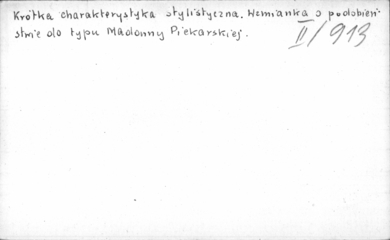 Krótka charakterystyka stylistyczna. Wzmianka o podobień-
stwie do typu Madonny Piekarskiej.
II/913